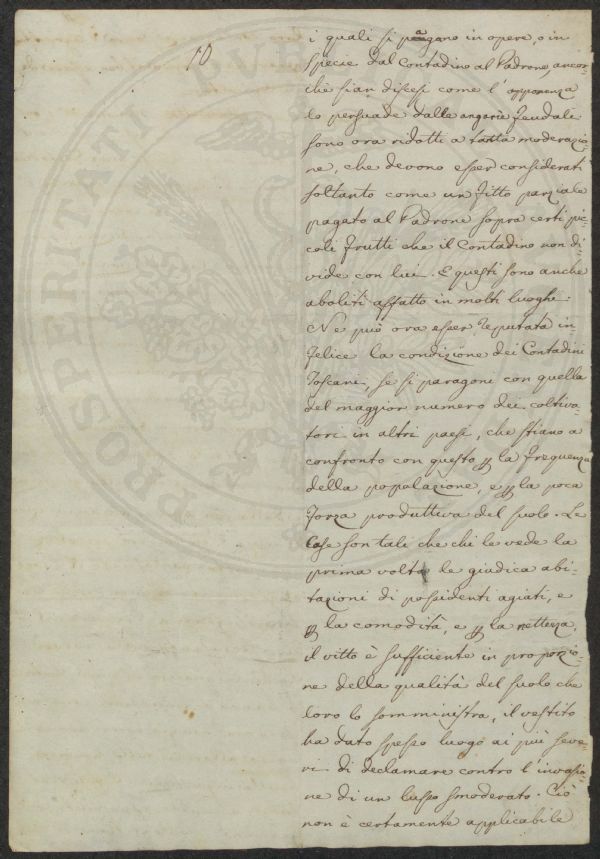 10
i quali si pagano in opere, o in
specie dal Contadino al Padrone, ancor-
chè sian discesi come l'apparenza
lo persuade dalle angarie feudali
sono ora ridotti a tanta moderazio-
ne, che devono esser considerati
soltanto come un fitto parziale
pagato al Padrone sopra certi pic-
coli frutti che il Contadino non di-
vide con lui. E questi sono anche
aboliti affatto in molti luoghi.
Ne può ora esser reputata in-
felice la condizione dei Contadini
Toscani, se si paragoni con quella
del maggior numero dei coltiva-
tori in altri paesi, che stiano a
confronto con questo p la frequenza
della popolazione, e p la poca
forza produttiva del suolo. Le
Case son tali che chi le vede la
prima volta le giudica abi-
tazioni di possidenti agiati, e
p la comodità, e p la nettezza,
il vitto è sufficiente in proporzio-
ne della qualità del suolo che
loro lo somministra, il vestito
ha dato spesso luogo ai più seve-
ri di declamare contro l'invasio-
ne di un lusso smoderato. Ciò
non è certamente applicabile
PROSPERITATI PVB